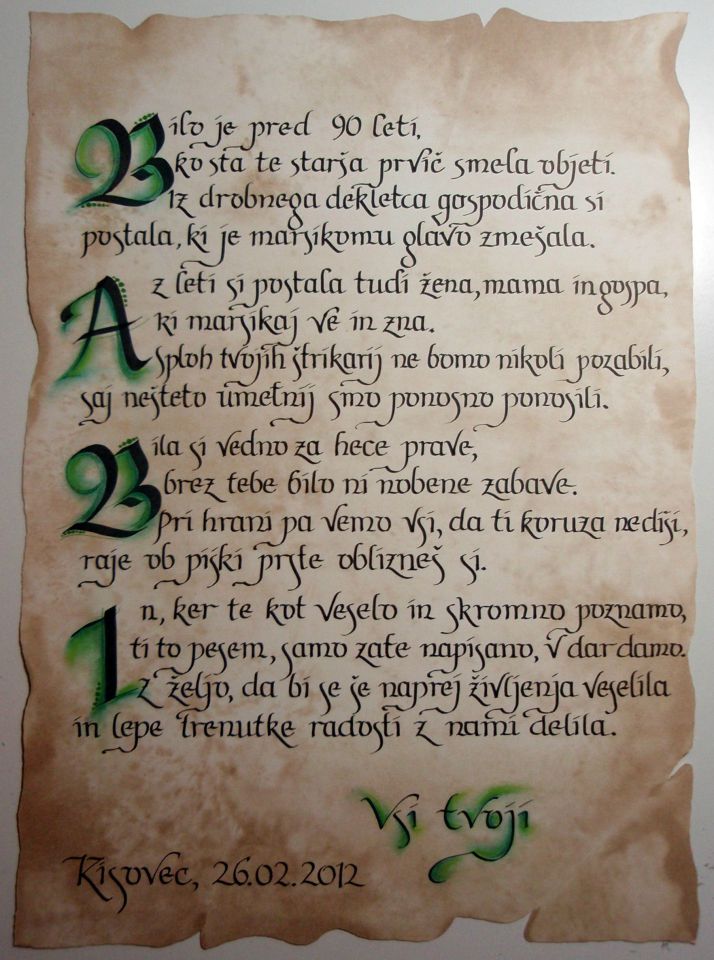 Bilo je pred 90 leti,
ko sta te starša prvič smela objeti.
Iz drobnega dekletca gospodična si
postala, ki je marsikomu glavo zmešala.
Z leti si postala tudi žena, mama in gospa,
ki marsikaj ve in zna.
A sploh tvojih štrikarij ne bomo nikoli pozabili,
saj nešteto umetnij smo ponosno ponosili.
Bila si vedno za hece prave,
brez tebe bilo ni nobene zabave.
Pri hrani pa vemo vsi, da ti koruza ne diši,
raje ob piški prste oblizneš si.
In, ker te kot veselo in skromno poznamo,
ti to pesem, samo zate napisano, v dar damo.
Z željo, da bi se še naprej življenja veselila
in lepe trenutke radosti z nami delila.
Vsi tvoji
Kisovec, 26.02.2012